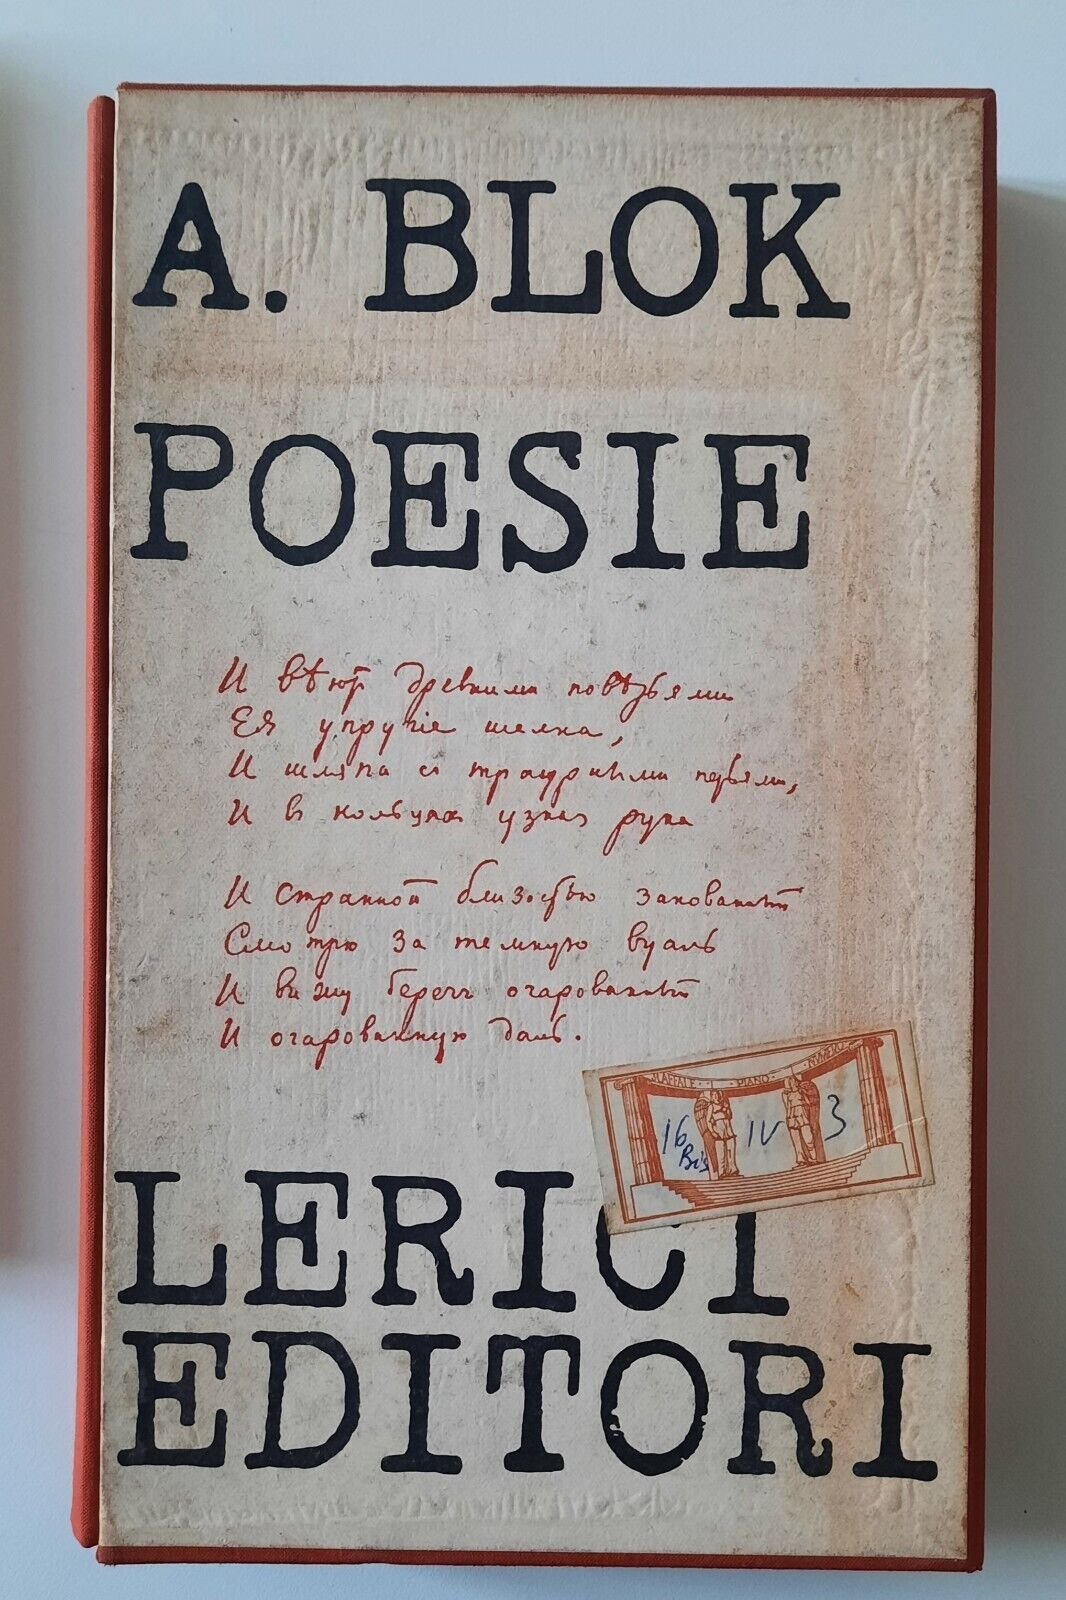 A. BLOK
POESIE
И вѣютъ древними повѣрьями
Ея упругіе шелка,
И шляпа съ траурными перьями,
И въ кольцахъ узкая рука
И странной близостью закованный
Смотрю за темную вуаль
И вижу берегъ очарованный
И очарованную даль.
SCAFFALE PIANO NUMERO
16 Bis IV 3
LERICI
EDITORI